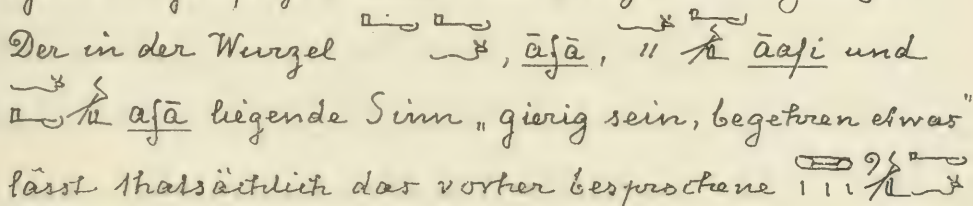 Der in der Wurzel 𓂝𓂝𓆑, āfā, 𓆑𓏭𓂝𓀢 āafi und
𓆑𓂝𓀢 afā liegende Sinn „gierig sein, begehren etwas“
lässt thatsächlich das vorher besprochene